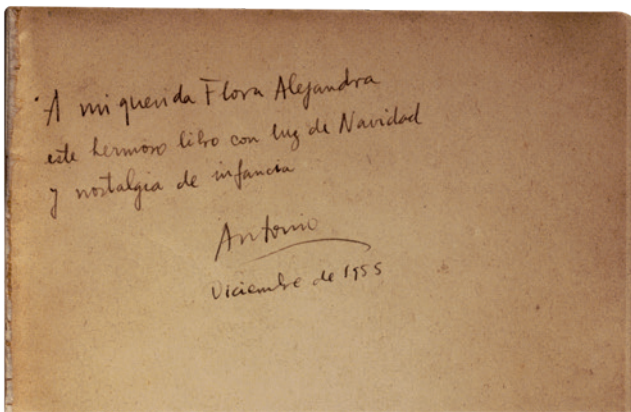 A mi querida Flora Alejandra
este hermoso libro con luz de Navidad
y nostalgia de infancia
Antonio
Diciembre de 1955